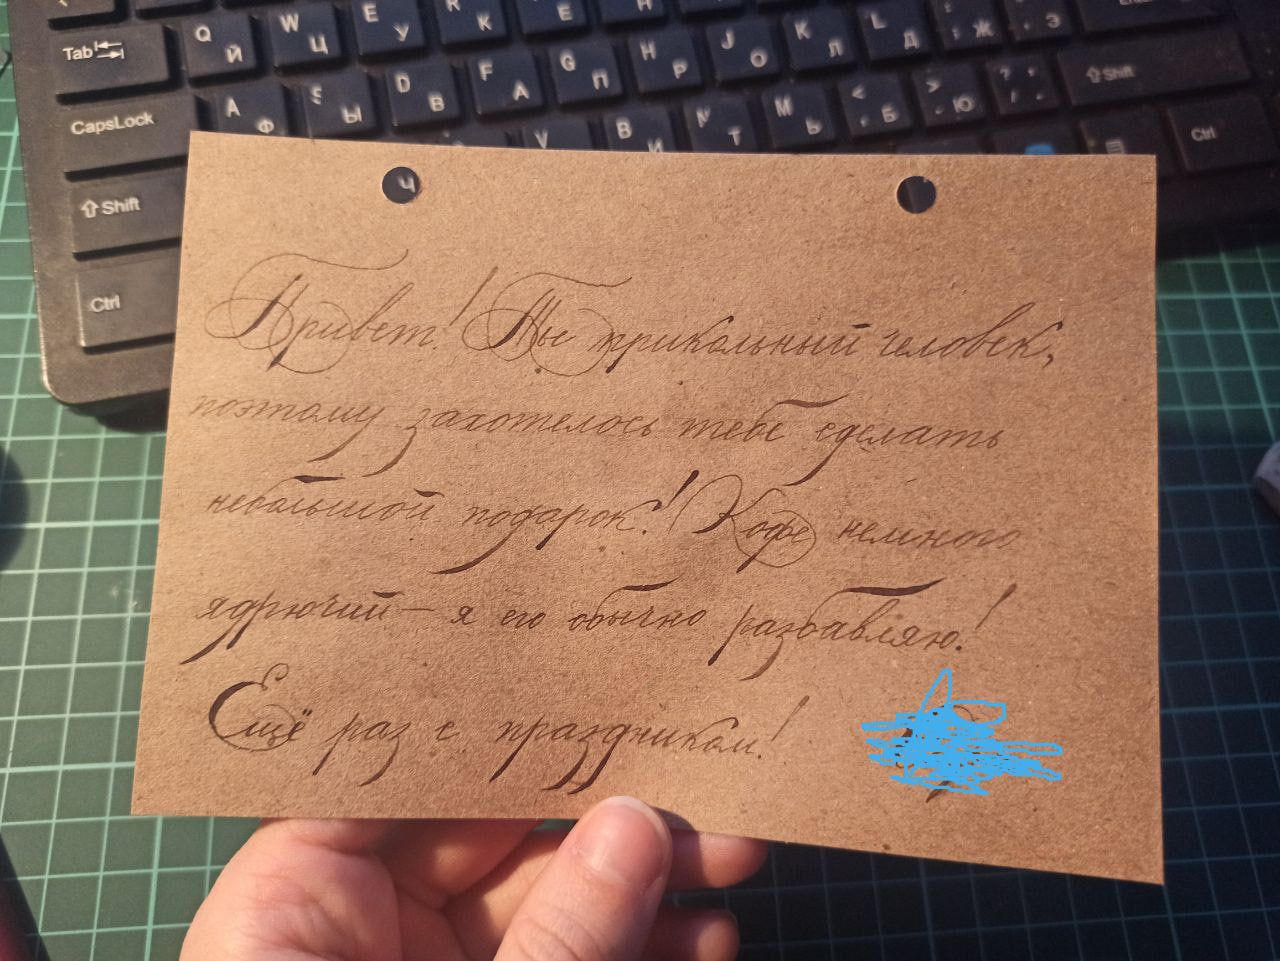 Q Й W Ц E У R К Е Н
Tab
A Ф S Ы D В F А G П H Р J О K Л L Д ; Ж З
CapsLock V B И N Т M Ь < , Б > . Ю ? / Shift
Shift Ctrl
Ctrl
Ч
Привет! Ты прикольный человек,
поэтому захотелось тебе сделать
небольшой подарок! Кофе немного
ядрючий – я его обычно разбавляю!
Ещё раз с праздником!